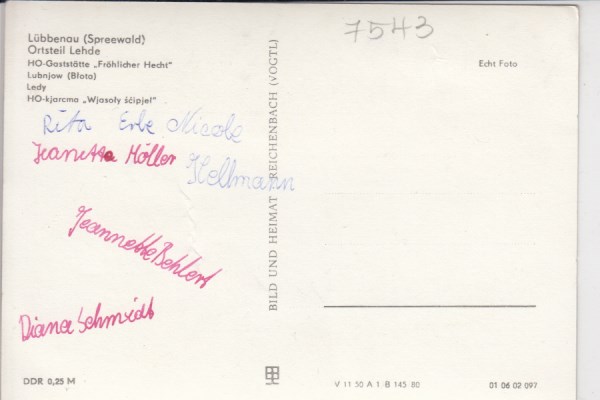 7543
Lübbenau (Spreewald)
Ortsteil Lehde
HO-Gaststätte „Fröhlicher Hecht"
Lubnjow (Błota)
Ledy
HO-kjarcma „Wjasoły šćipjeł"
Echt Foto
Rita Erbe Nicole
Jeanette Möller Hellmann
Jeannette Behlert
Diana Schmidt
BILD UND HEIMAT REICHENBACH (VOGTL)
DDR 0,25 M
V 11 50 A 1 B 145 80
01 06 02 097